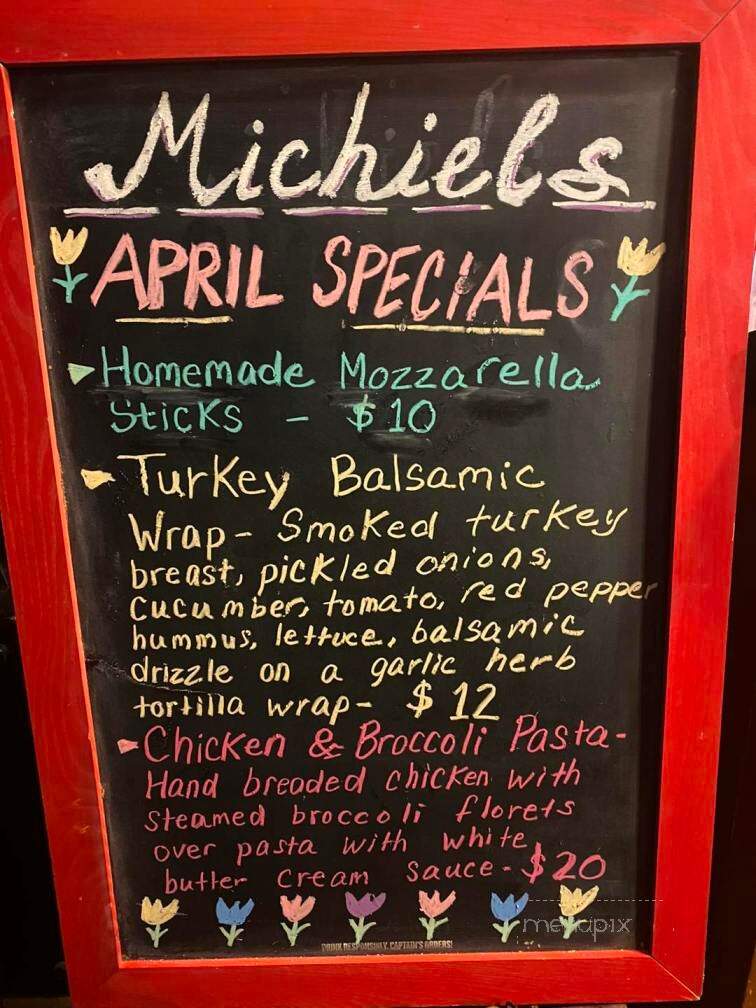 Michiels
APRIL SPECIALS
Homemade Mozzarella
Sticks - $10
Turkey Balsamic
Wrap - Smoked turkey
breast, pickled onions,
cucumber, tomato, red pepper
hummus, lettuce, balsamic
drizzle on a garlic herb
tortilla wrap - $12
Chicken & Broccoli Pasta -
Hand breaded chicken with
steamed broccoli florets
over pasta with white
butter cream sauce - $20
menupix
DRINK RESPONSIBLY. CAPTAIN'S ORDERS!